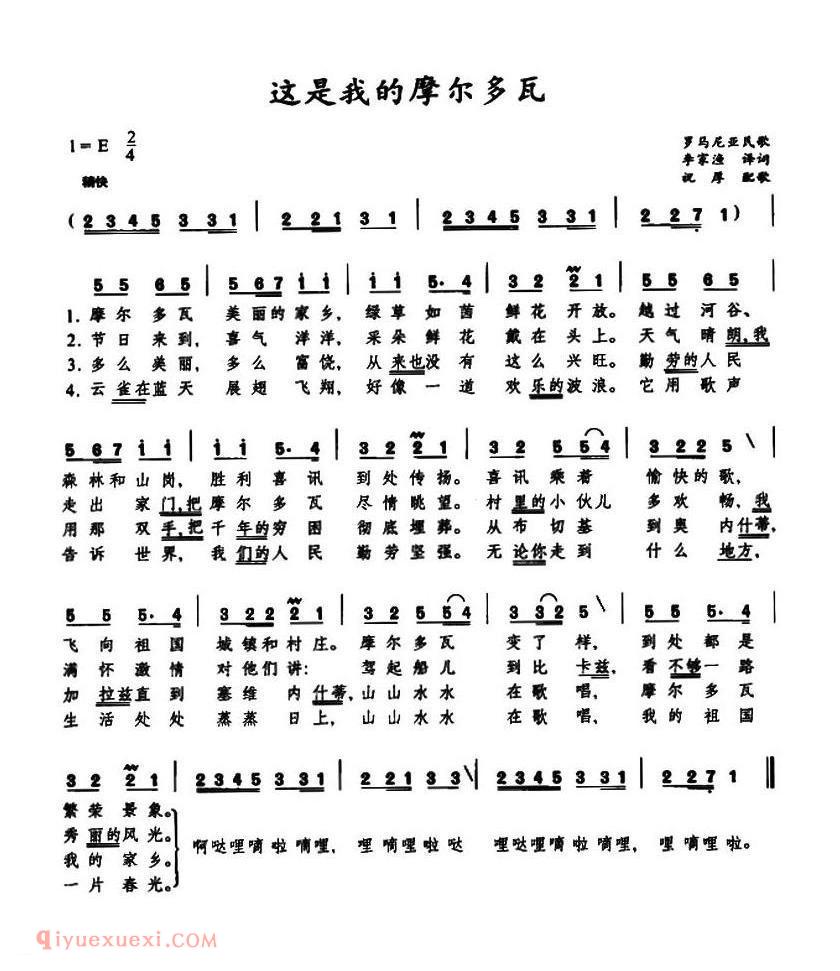 这是我的摩尔多瓦
1=E 2/4
稍快
罗马尼亚民歌
李家渔 译词
祝厚 配歌
( 2345 331 | 22 1 31 | 2345 331 | 22 7 1 ) |
55 65 | 567 i i | i i 5·4 | 32 21 | 55 65 |
1. 摩尔多瓦 美丽的家乡, 绿草如茵 鲜花开放。越过河谷、
2. 节日来到, 喜气洋洋, 采朵鲜花 戴在头上。天气晴朗,我
3. 多么美丽, 多么富饶, 从来也没有 这么兴旺。勤劳的人民
4. 云雀在蓝天 展翅飞翔, 好像一道 欢乐的波浪。它用歌声
5 67 i i | i i 5·4 | 32 21 | 52 554 | 322 5 \ |
森林和山岗, 胜利喜讯 到处传扬。喜讯乘着 愉快的歌,
走出家门,把摩尔多瓦 尽情眺望。村里的小伙儿 多欢畅,我
用那双手,把千年的穷困 彻底埋葬。从布切基 到奥内什蒂,
告诉世界,我们的人民 勤劳坚强。无论你走到 什么地方,
55 5·4 | 322 21 | 32 554 | 332 5 \ | 55 5·4 |
飞向祖国 城镇和村庄。摩尔多瓦 变了样, 到处都是
满怀激情 对他们讲: 驾起船儿 到比卡兹,看不够一路
加拉兹直到 塞维内什蒂,山山水水 在歌唱, 摩尔多瓦
生活处处 蒸蒸日上,山山水水 在歌唱, 我的祖国
32 21 | 2345 331 | 221 33 \ | 2345 331 | 227 1 ‖
繁荣景象。
秀丽的风光。
我的家乡。
一片春光。
啊哒哩嘀啦嘀哩, 哩嘀哩啦哒 哩哒哩嘀啦嘀哩, 哩嘀哩啦。
qiyuexuexi.COM